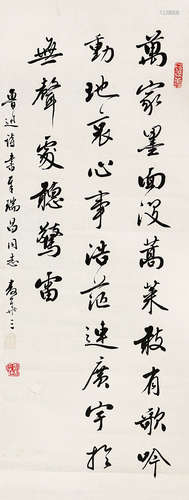 萬家墨面没蒿萊敢有歌吟
動地哀心事浩茫連廣宇於
無聲處聽驚雷
魯迅詩書奉瑞昌同志